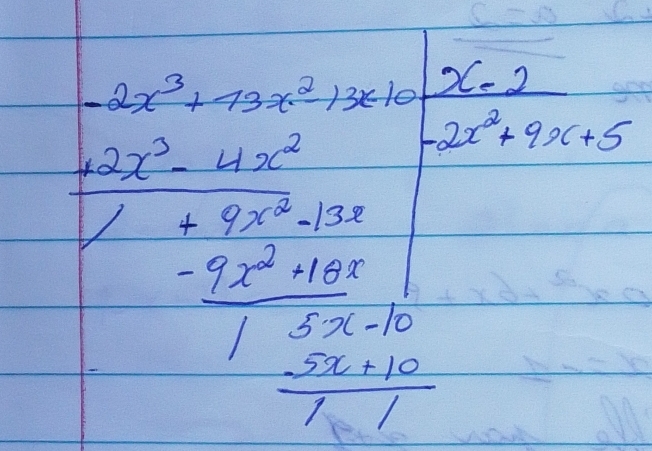 -2x³ + 13x² - 13x - 10 | x - 2
+2x³ - 4x² | -2x² + 9x + 5
/ + 9x² - 13x
- 9x² + 18x
/ 5x - 10
- 5x + 10
/ /